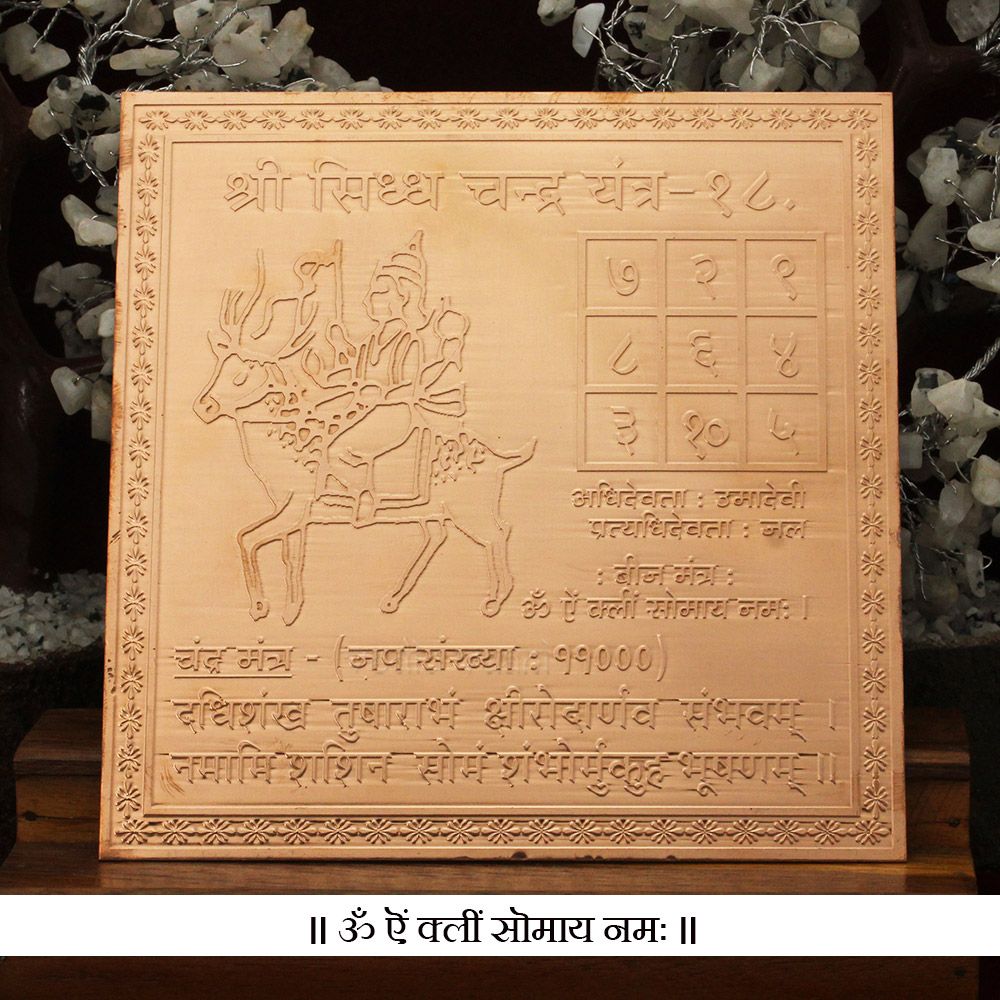 श्री सिध्ध चन्द्र यंत्र-१८.
७ २ १
८ ६ ४
३ १० ५
अधिदेवता : उमादेवी
प्रत्यधिदेवता : जल
: बीज मंत्र :
ॐ ऐं क्लीं सोमाय नमः ।
चंद्र मंत्र - (जप संख्या : ११०००)
दधिशंख तुषाराभं क्षीरोदार्णव संभवम् ।
नमामि शशिन सोमं शंभोर्मुकुह भूषणम् ॥
॥ ॐ ऐं क्लीं सोमाय नमः ॥